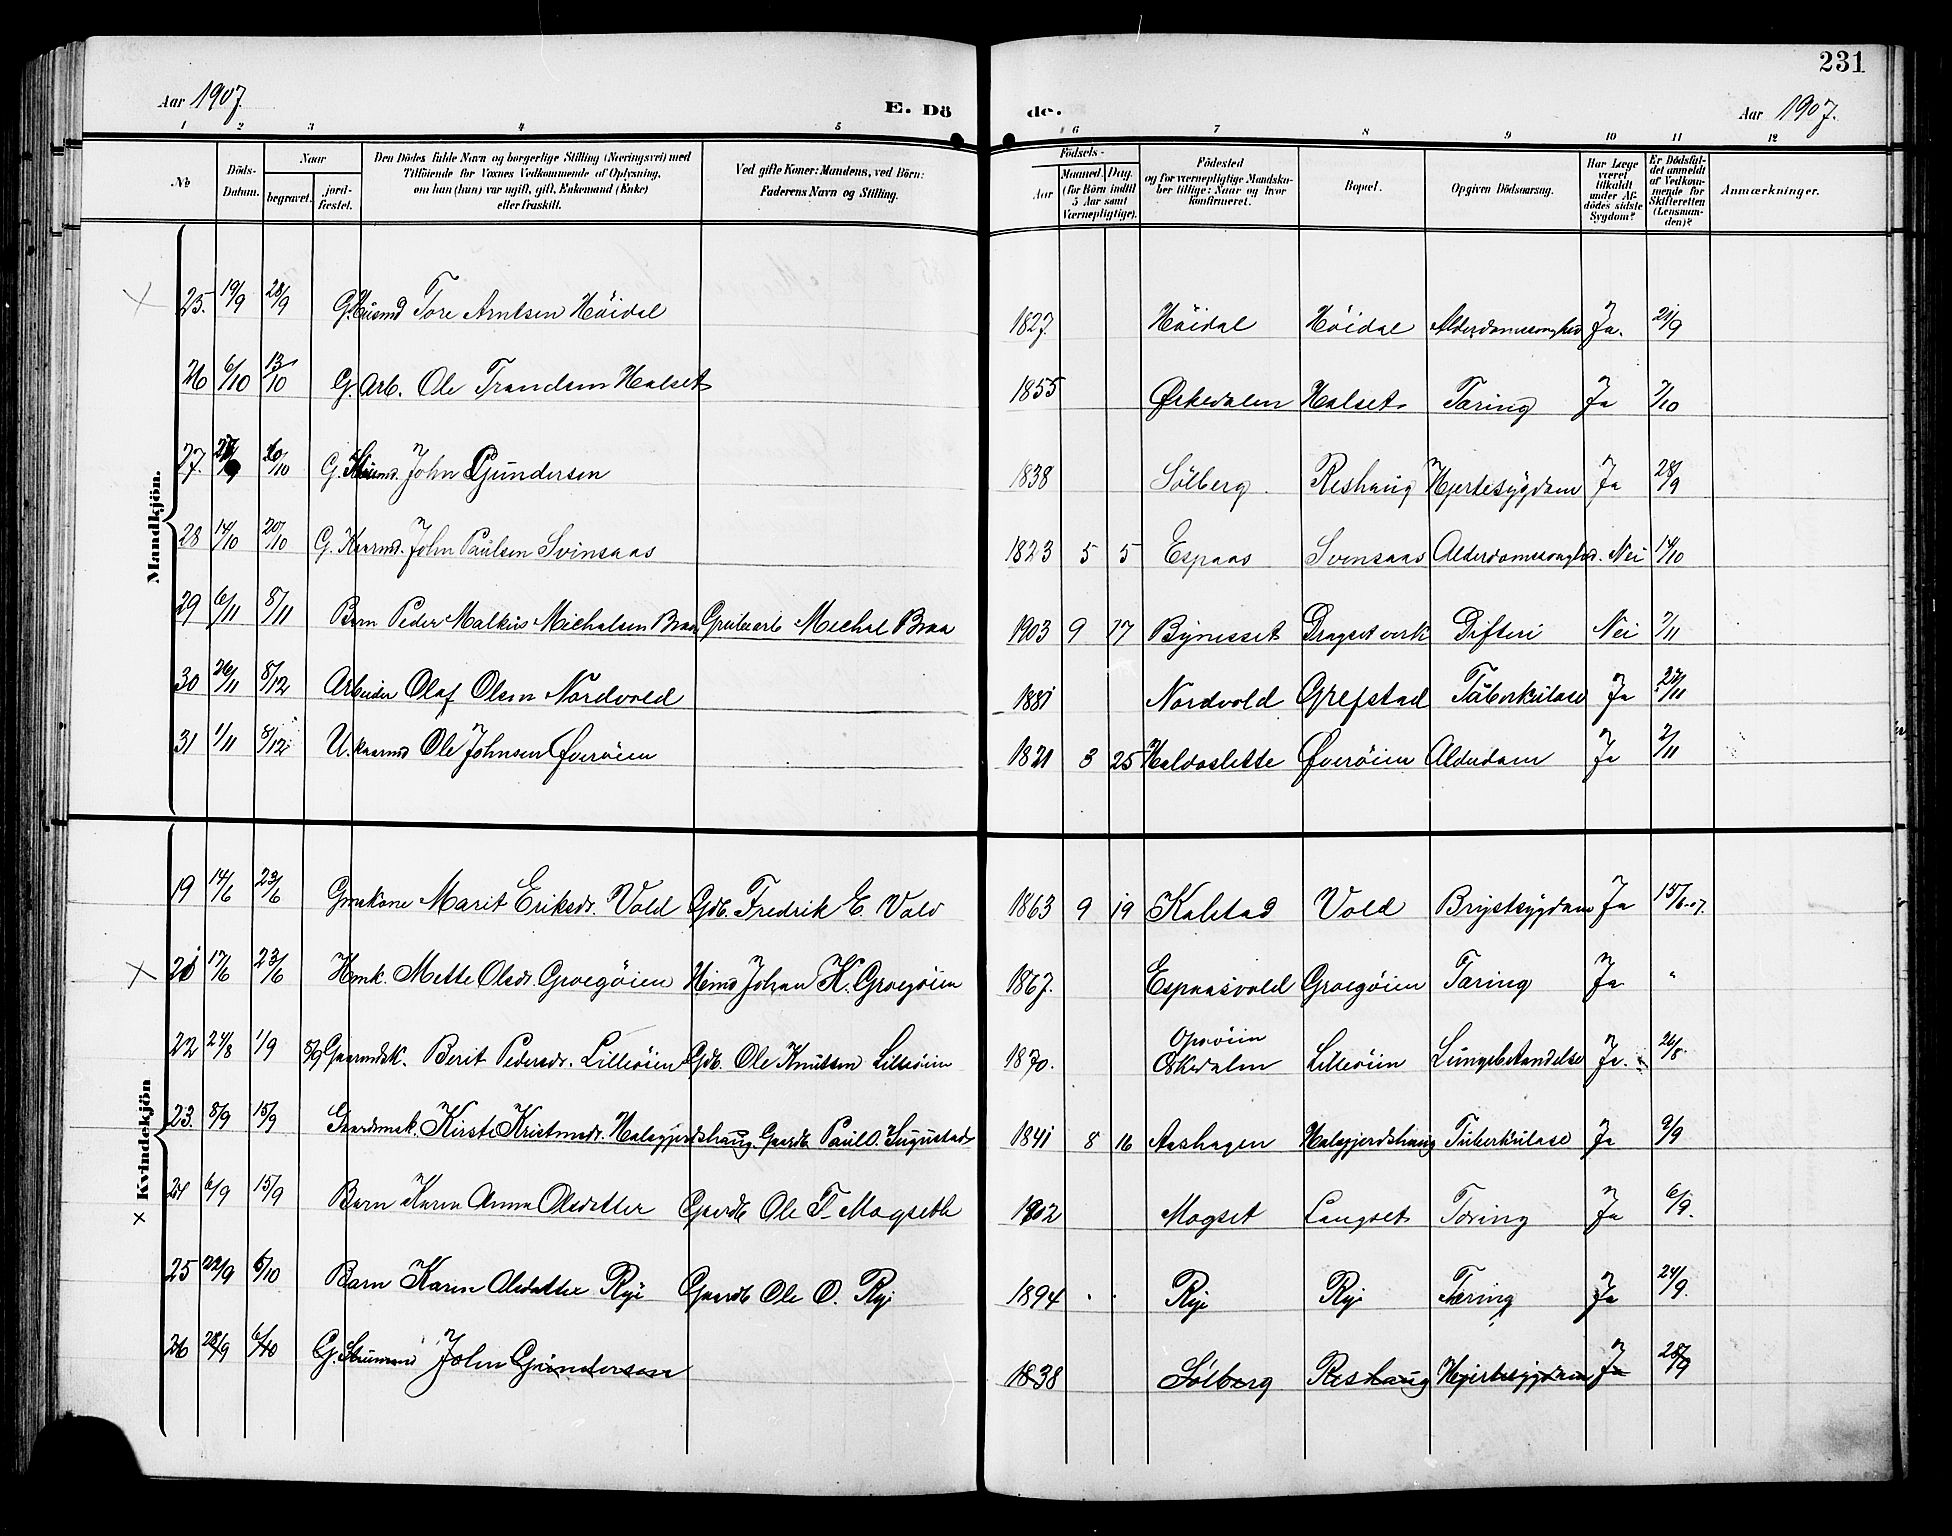 231
Aar 1907. E. Dö de. Aar 1907.
1 2 3 4 5 6 7 8 9 10 11 12
No Döds-Datum. Naar begravet. jord-fæstet. Den Dödes fulde Navn og borgerlige Stilling (Næringsvei) med Tilföiende for Voxnes Vedkommende af Oplysning, om han (hun) var ugift, gift, Enkemand (Enke) eller fraskilt. Ved gifte Koner: Mandens, ved Börn: Faderens Navn og Stilling. Födsels- Aar Maaned. Dag. (for Börn indtil 5 Aar samt Værnepligtige). Födested og for værnepligtige Mandskaber tillige: Naar og hvor konfirmeret. Bopæl. Opgiven Dödsaarsag. Har Læge været tilkaldt under Afdödes sidste Sygdom? Er Dödsfaldet anmeldt af Vedkommende for Skifteretten (Lensmanden)? Anmærkninger.
Mandkjön.
25. 19/9 28/9 G. Husmd Tore Arntsen Höidal 1827 Höidal Höidal Ja. 21/9
26 6/10 13/10 G. Arb. Ole Trondsen Halset 1855 Orkedalen Halset Tæring Ja 7/10
27. 20/10 G. John Gundersen 1838 Sölberg Reshaug Hjertesygdom Ja 28/9
28 14/10 20/10 G. Kaarmd. John Paulsen Svinsaas 1823 5 5 Espaas Svensaas Nei 14/10
29 6/11 8/11 Barn Peder Malkus Michalsen Braa Grubearb Michal Braa 1903 9 17 Bynesset Dragset verk Difteri Nei 7/11
30 26/11 8/12 Arbeider Olaf Olsen Nordvold 1881 Nordvold Grefstad Tuberkulose Ja 27/11
31 1/11 8/12 U. kaarmd Ole Johnsen Överöien 1821 3 25 Halvorslette Överöien Alderdom Ja 2/11
Kvindekjön
19 14/6 23/6 Gmskone Marit Eriksdr. Vold Gdb. Fredrik E. Vold 1863 9 19 Kalstad Vold Brystsygdom Ja 15/6-07.
17/6 23/6 Hmk. Mette Olsdr. Groegöien Hmd Johan K. Groegöien 1867. Espaasvold Groegöien Tæring Ja "
22 24/8 1/9 Gaarmdsk. Berit Pedersdr. Lilleöien Gdb. Ole Knutsen Lilleöien 1870. Lilleöien Lungebetændelse Ja. 26/8.
23. 8/9 15/9 Gaardmsk. Kirsti Kristensdr. Halsgjerdshaug Gaardb Paul O. 1841 8 16 Aashagen Halsgjerdshaug Tuberkulose Ja 9/9
24 6/9 15/9 Barn Karen Anna Olsdatter Gaardb Ole T. Mogseth 1902 Mogset Langset Tæring Ja 6/9.
25 22/9 6/10 Barn Karen Olsdatter Rye Gaardb Ole O. Rye 1894 Rye Rye Tæring Ja 24/9.
26 28/9 6/10 G. Husmand John Gundersen 1838 Sölberg Reshaug Hjertesygdom Ja 28/9